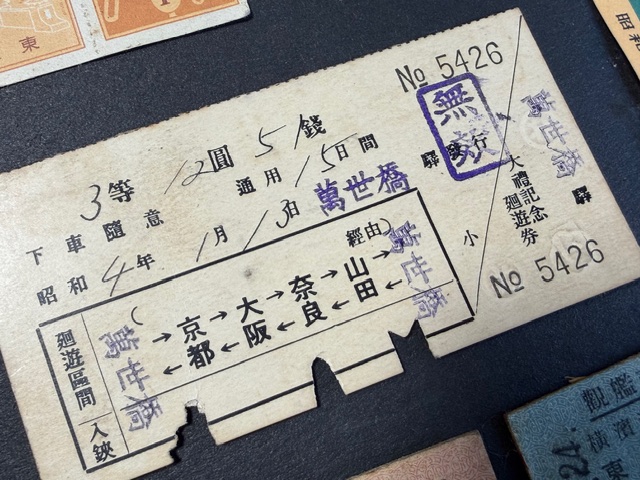 東
昭和
№ 5426
無効
3等 12圓 5/錢
通用 15日間
下車隨意
昭和4年 1月13日 萬世橋驛發行
小
大禮記念
廻遊券
萬世橋驛
№ 5426
廻遊區間
入鋏
萬世橋
(
→京都→大阪→奈良→山田
←←←←
經由)
萬世橋
觀艦
橫濱
東
24